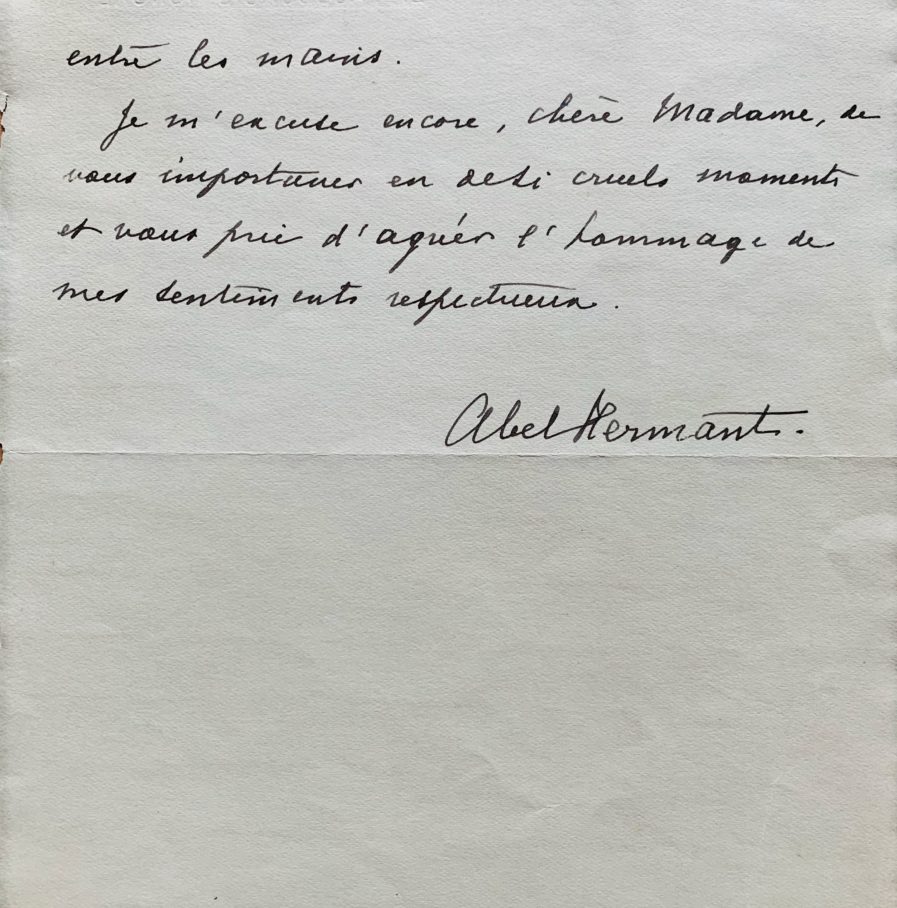 entre les mains.
Je m'excuse encore, chère Madame, de
vous importuner en de si cruels moments
et vous prie d'agréer l'hommage de
mes sentiments respectueux.
Abel Hermant.